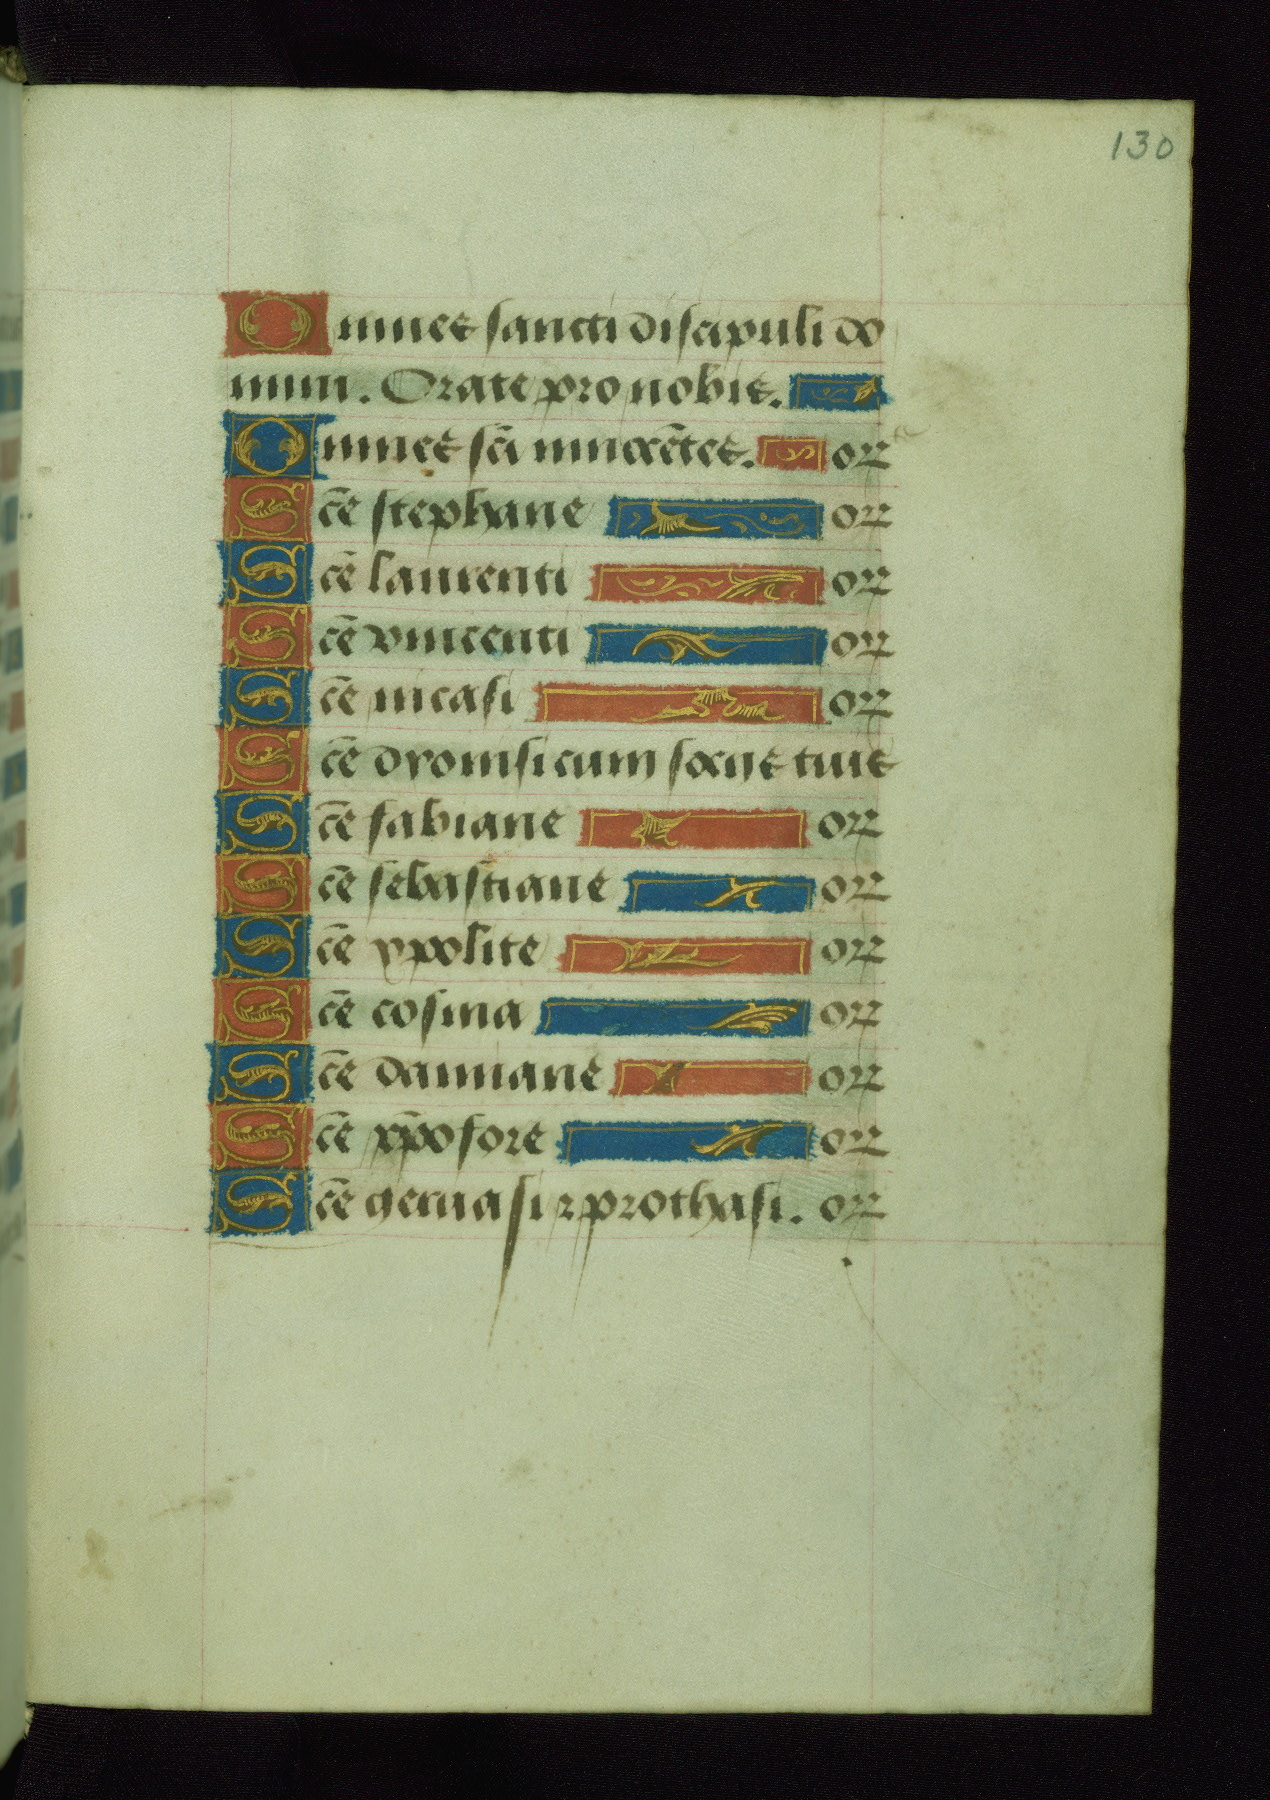 130
Omnes sancti discipuli do
mini. Orate pro nobis.
Omnes scı̄ innocẽtes. or
Scē stephane or
Scē laurenti or
Scē vincenti or
Scē nicasi or
Scē dyonisi cum socijs tuis
Scē fabiane or
Scē sebastiane or
Scē ypolite or
Scē cosma or
Scē damiane or
Scē xp̄ofore or
Scē geruasi ⁊ prothasi. or